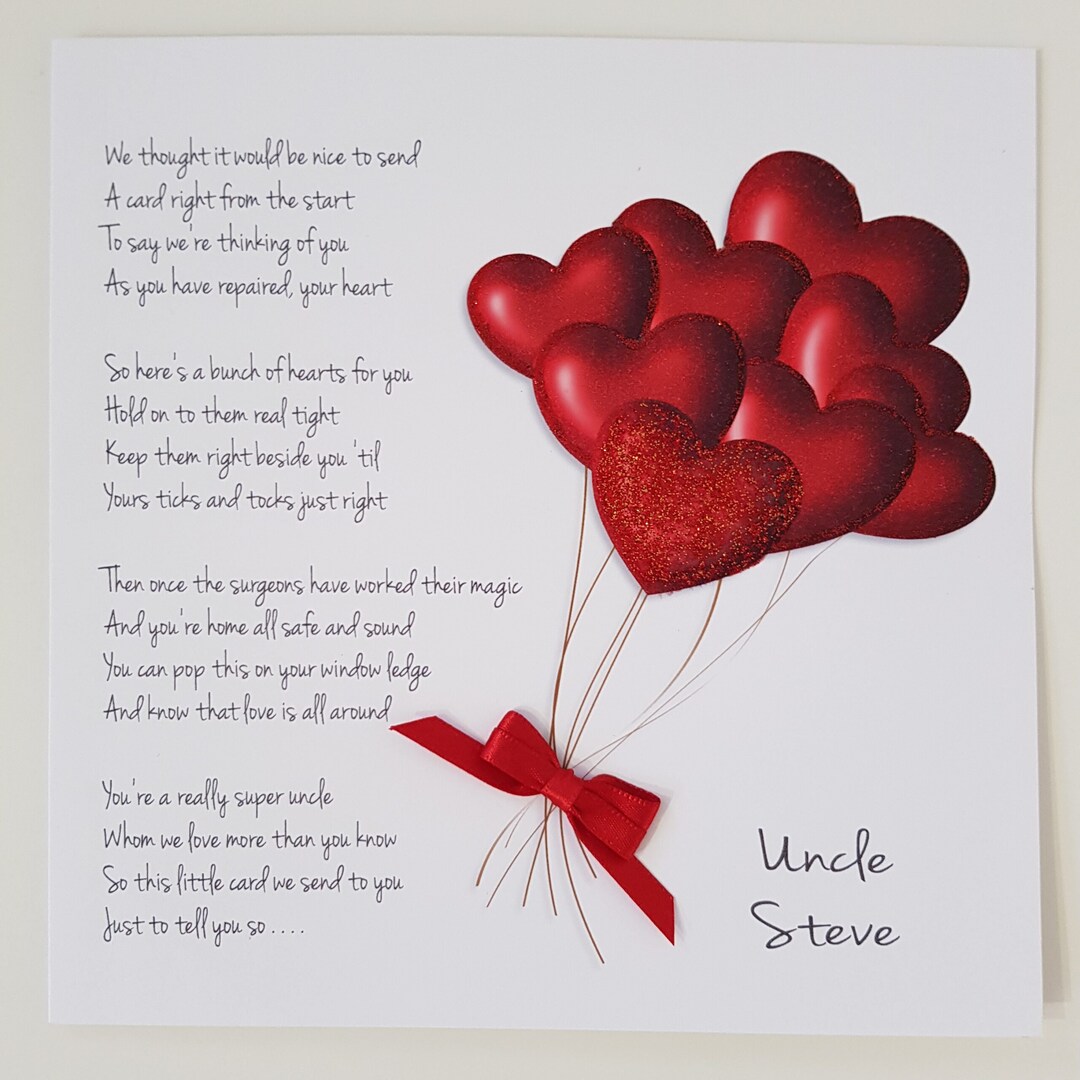 We thought it would be nice to send
A card right from the start
To say we're thinking of you
As you have repaired, your heart
So here's a bunch of hearts for you
Hold on to them real tight
Keep them right beside you 'til
Yours ticks and tocks just right
Then once the surgeons have worked their magic
And you're home all safe and sound
You can pop this on your window ledge
And know that love is all around
You're a really super uncle
Whom we love more than you know
So this little card we send to you
Just to tell you so ....
Uncle
Steve